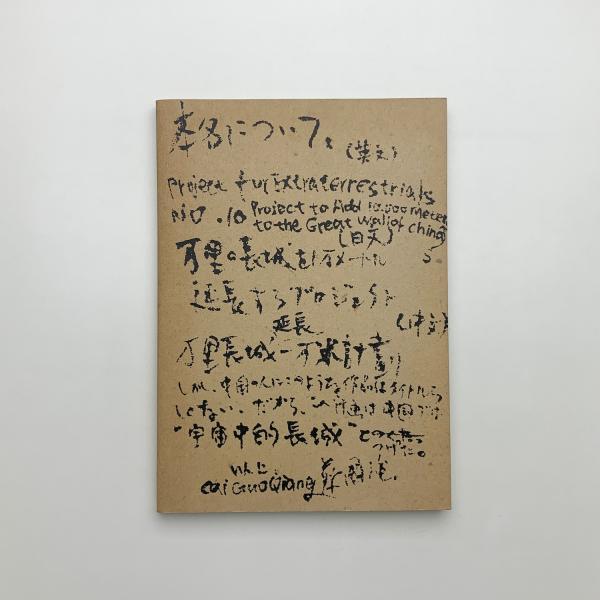 本名について。
(英文)
Project for Extraterrestrials
No.10 Project to Add 10.000 meters
to the Great Wall of China
(日文)
万里の長城を1万メートル
延長するプロジェクト
延長 (中文)
万里長城一万米計劃
しかし、中国の人にこのような作品はタイトルら
しくない、だから、この計画は中国では
"宇宙中的長城"と
つけた。
cai Guo Qiang 蔡國強